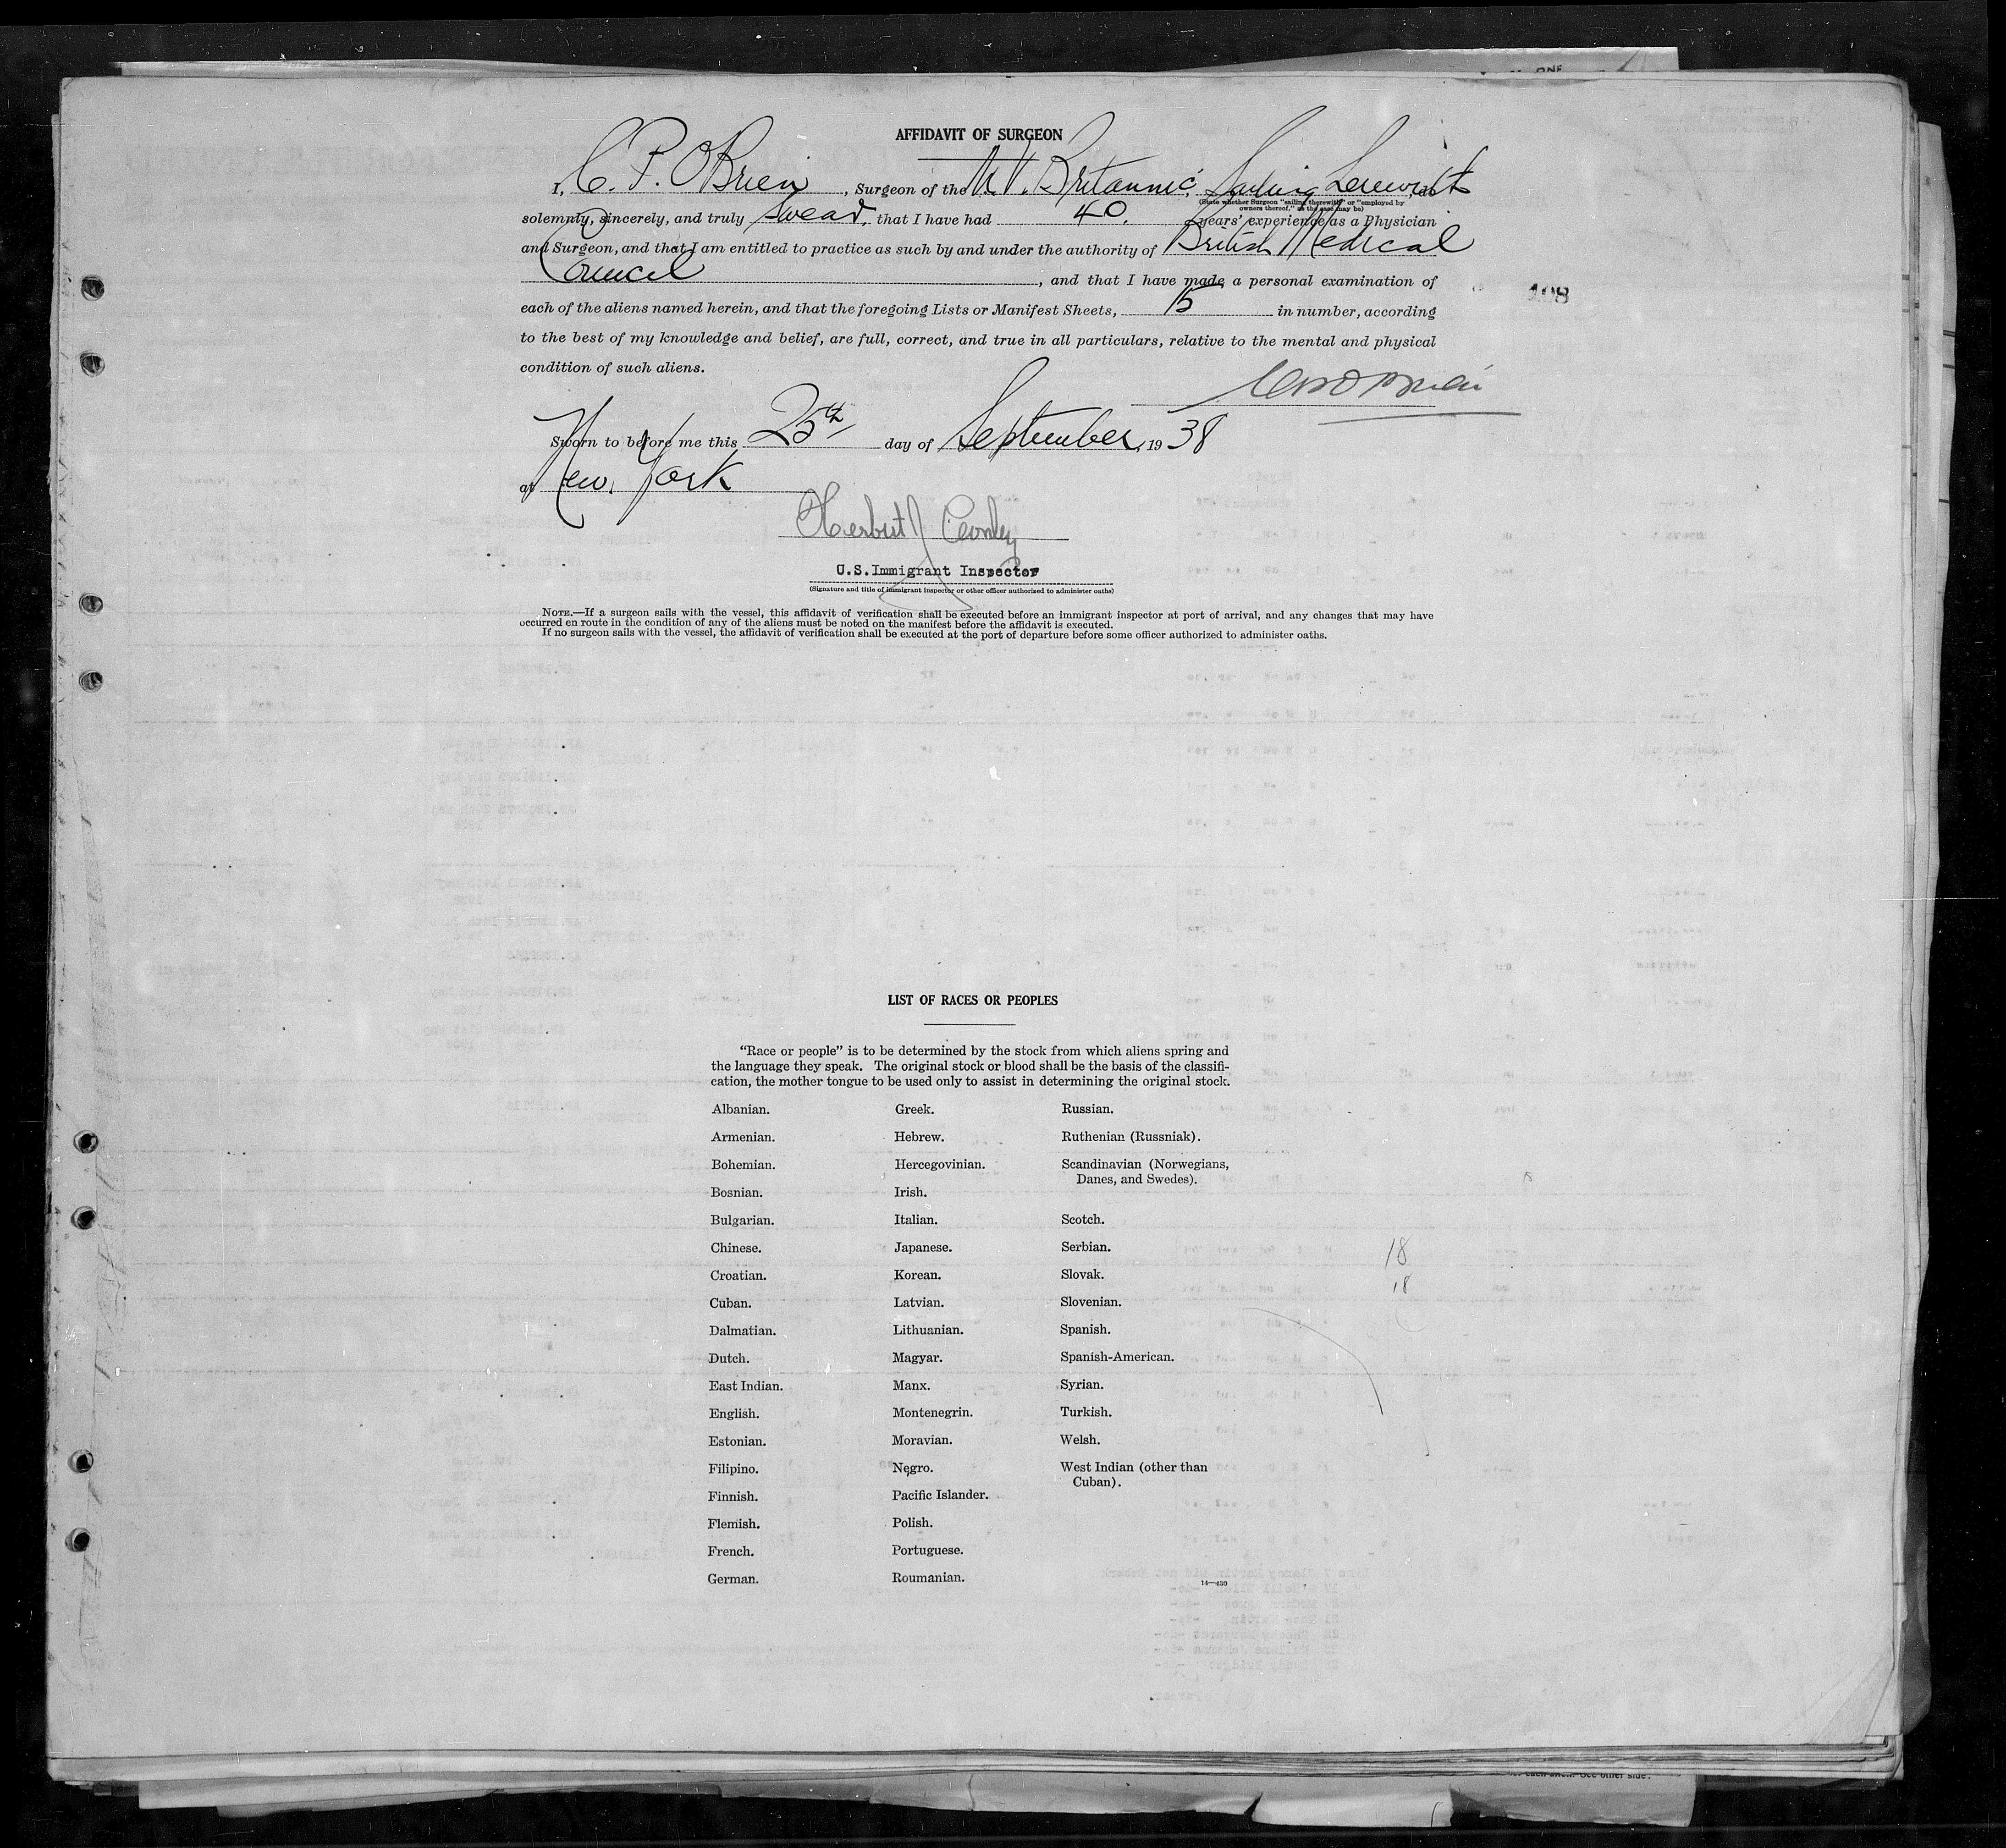 AFFIDAVIT OF SURGEON
I, C. P. O'Brien, Surgeon of the M.V. Britannic, Sailing Therewith, do
(State whether Surgeon "sailing therewith" or "employed by
owners thereof," as the case may be)
solemnly, sincerely, and truly swear, that I have had 40. years' experience as a Physician
and Surgeon, and that I am entitled to practice as such by and under the authority of British Medical
Council, and that I have made a personal examination of
each of the aliens named herein, and that the foregoing Lists or Manifest Sheets, 15 in number, according
108
to the best of my knowledge and belief, are full, correct, and true in all particulars, relative to the mental and physical
condition of such aliens.
Sworn to before me this 25th day of September, 1938
at New York
Herbert J Conley
U.S.Immigrant Inspector
(Signature and title of immigrant inspector or other officer authorized to administer oaths)
NOTE.—If a surgeon sails with the vessel, this affidavit of verification shall be executed before an immigrant inspector at port of arrival, and any changes that may have
occurred en route in the condition of any of the aliens must be noted on the manifest before the affidavit is executed.
If no surgeon sails with the vessel, the affidavit of verification shall be executed at the port of departure before some officer authorized to administer oaths.
LIST OF RACES OR PEOPLES
"Race or people" is to be determined by the stock from which aliens spring and
the language they speak. The original stock or blood shall be the basis of the classifi-
cation, the mother tongue to be used only to assist in determining the original stock.
Albanian.
Armenian.
Bohemian.
Bosnian.
Bulgarian.
Chinese.
Croatian.
Cuban.
Dalmatian.
Dutch.
East Indian.
English.
Estonian.
Filipino.
Finnish.
Flemish.
French.
German.
Greek.
Hebrew.
Hercegovinian.
Irish.
Italian.
Japanese.
Korean.
Latvian.
Lithuanian.
Magyar.
Manx.
Montenegrin.
Moravian.
Negro.
Pacific Islander.
Polish.
Portuguese.
Roumanian.
Russian.
Ruthenian (Russniak).
Scandinavian (Norwegians,
Danes, and Swedes).
Scotch.
Serbian.
Slovak.
Slovenian.
Spanish.
Spanish-American.
Syrian.
Turkish.
Welsh.
West Indian (other than
Cuban).
18
18
14—430